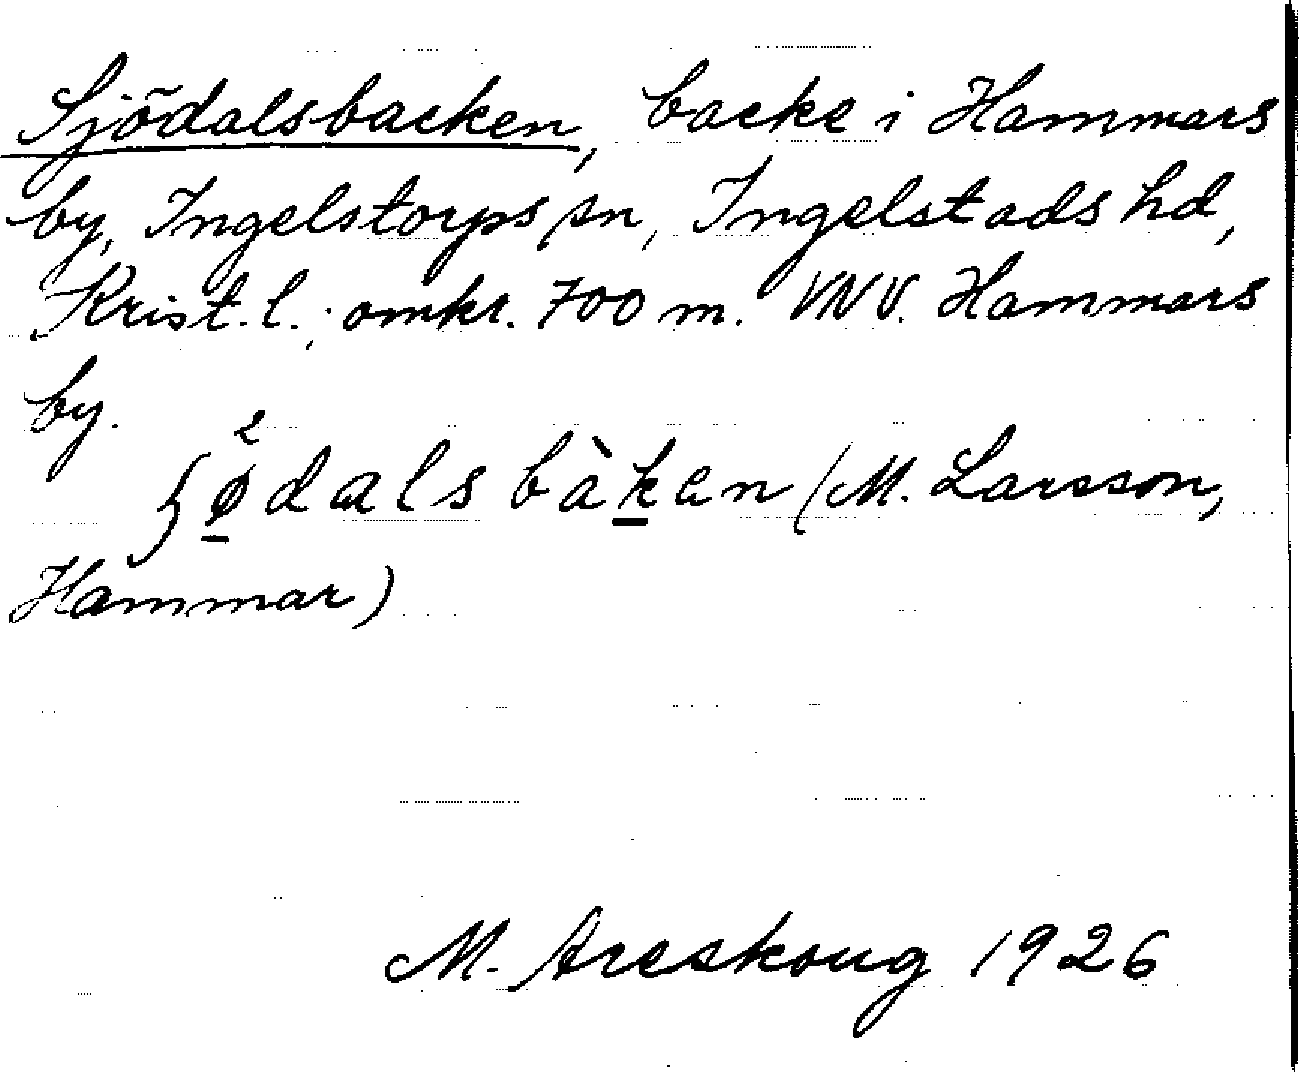 Sjödalsbacken, backe i Hammars
by, Ingelstorps sn, Ingelstads hd,
Krist. l.; omkr. 700 m. VNV. Hammars
by.
ʃø²dalsbàken (M. Larsson,
Hammar)
M. Areskoug 1926